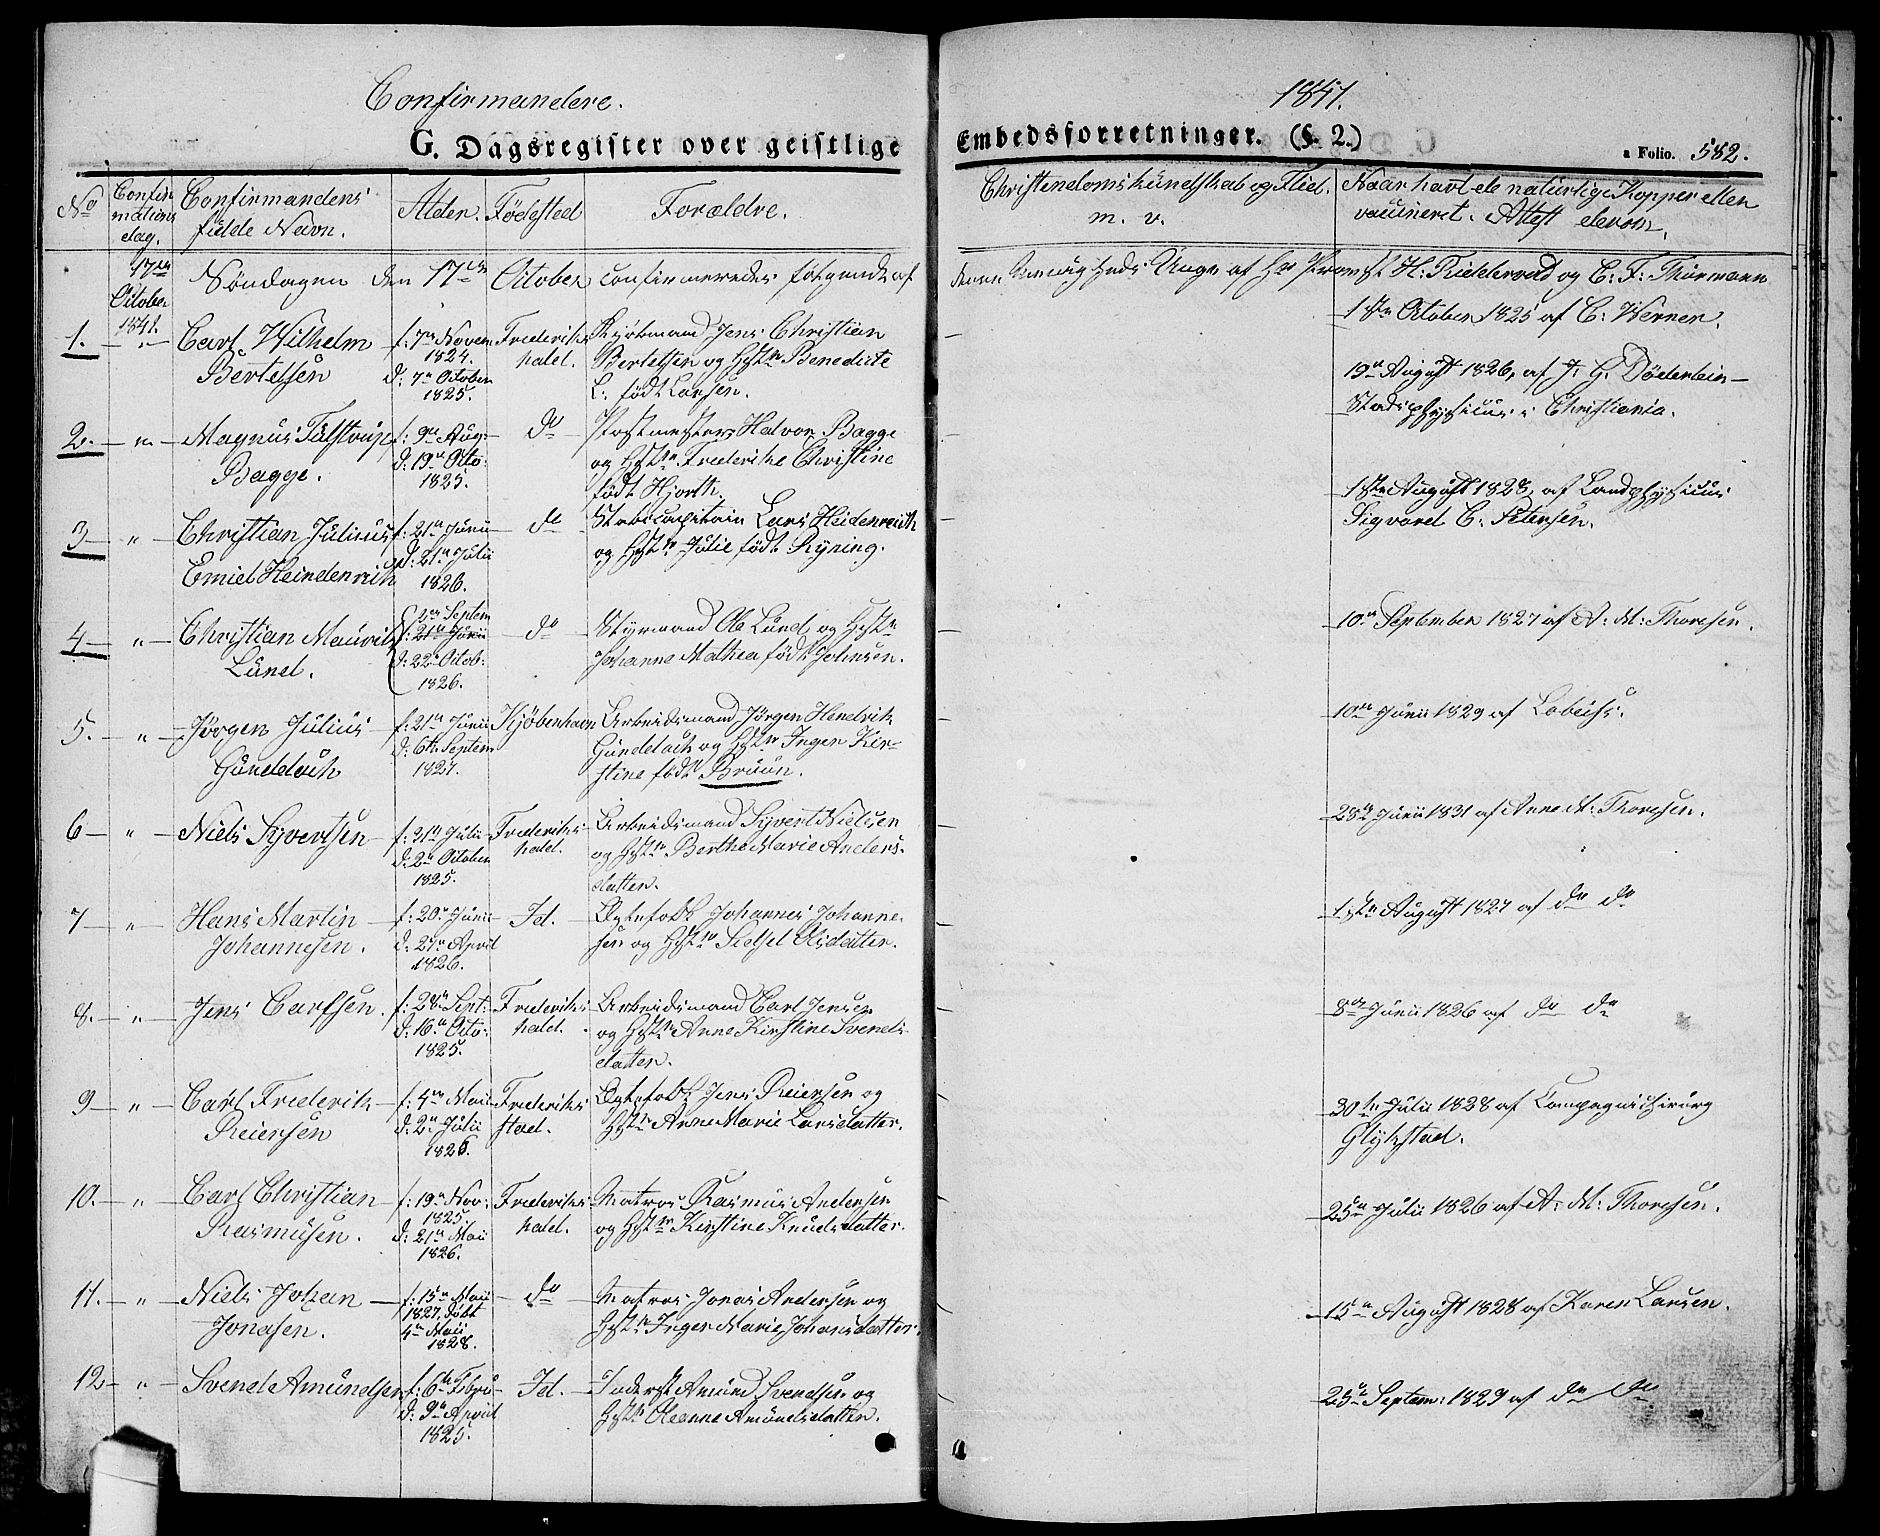 Confirmandere.
1841.
G. Dagsregister over geistlige
Embedsforretninger. (§. 2.)
a Folio. 582.
No
Confir
mations
dag.
Confirmandens
fulde Navn.
Alder.
Fødested
Forældre.
Christendomskundskab og Flid.
m. v.
Naar havt de naturlige Kopper eller
vaccineret. Attest derom.
17de
October
1841.
Søndagen den 17de October confirmeredes følgende af
denne Menigheds Unge af Hr Provst H. Riddervold og C. F. Thurmann
1. " Carl Wilhelm
Bertelsen
f: 7de Novem
1824.
d: 7de October
1825.
Frederiks
hald.
Kjøbmand Jens Christian
Bertelsen og Hstr Benedicte
L. født Larsen.
1ste October 1825 af C: Werner.
2. — " — Magnus Tulstrup
Bagge.
f: 9de Aug:
d: 19de Octo:
1825.
do
Postmester Halvor Bagge
og Hstr Frederike Christine
født Hjorth.
19de August 1826, af J. G. Døderlein
Stadsphysicus i Christiania.
3 — " — Christian Julius
Emiel Heidenreich
f: 21de Junii
d: 21de Julii
1826.
do
Stabscapitain Lars Heidenreich
og Hstr Julie født Ryning.
1ste August 1828, af Landphysicus
Sigvard C. Petersen.
4 — " — Christian Mauritz
Lund.
Septem
f: 21de Junii
d: 22de Octob:
1826.
do
Styrmand Ole Lund og Hstr
Johanne Mathea født Johnsen.
10de September 1827 af A: M: Thoresen.
5. " Jørgen Julius
Gundelach
f: 21de Junii
d: 6te Septem
1827.
Kjøbenhavn
Arbeidsmand Jørgen Hendrik
Gundelach og Hstr Inger Kir-
stine født Bruun.
10de Junii 1829 af
6 — " — Niels Syvertsen
f: 21de Julii
d: 2de October
1825.
Frederiks
hald.
Arbeidsmand Syvert Nielsen
og Hstr Berthe Marie Anders-
datter.
28de Junii 1831 af Anne M: Thoresen.
7 — " — Hans Martin
Johannesen.
f: 20de Junii
d: 27de April
1826.
Id.
Ægtefolk Johannes Johanne-
sen og Hstr Sidsel Olsdatter.
1ste August 1827 af do do
8. — " — Jens Carlsen.
f: 28de Sept:
d: 16de Octo:
1825.
Frederiks
hald.
Arbeidsmand Carl Jensen
og Hstr Anne Kirstine Svends
datter.
8de Junii 1826 af do do
9 — " — Carl Frederik
Reiersen
f: 4de Maii
d: 2de Julii
1826.
Frederiks
stad.
Ægtefolk Jens Reiersen og
Hstr Anne Marie Larsdatter.
30te Julii 1828 af Compagnichirurg
Glykstad.
10. — " — Carl Christian
Rasmusen.
f: 19de Nov:
1825.
d: 21de Maii
1826.
Frederiks
hald.
Matros Rasmus Andersen
og Hstr Kirstine Knudsdatter.
25de Julii 1826 af A: M: Thoresen.
11. — " — Niels Johan
Jonasen.
f: 15de Maii
1827, døbt
4de Maii
1828.
do
Matros Jonas Andersen og
Hstr Inger Marie Johansdatter.
15de August 1828 af Karen Larsen.
12 — " — Svend Amundsen
f: 6te Febru
d: 9de April
1825.
Id.
Inderst Amund Svendsen og
Hstr Oleanne Amundsdatter.
25de Septem: 1829 af do do